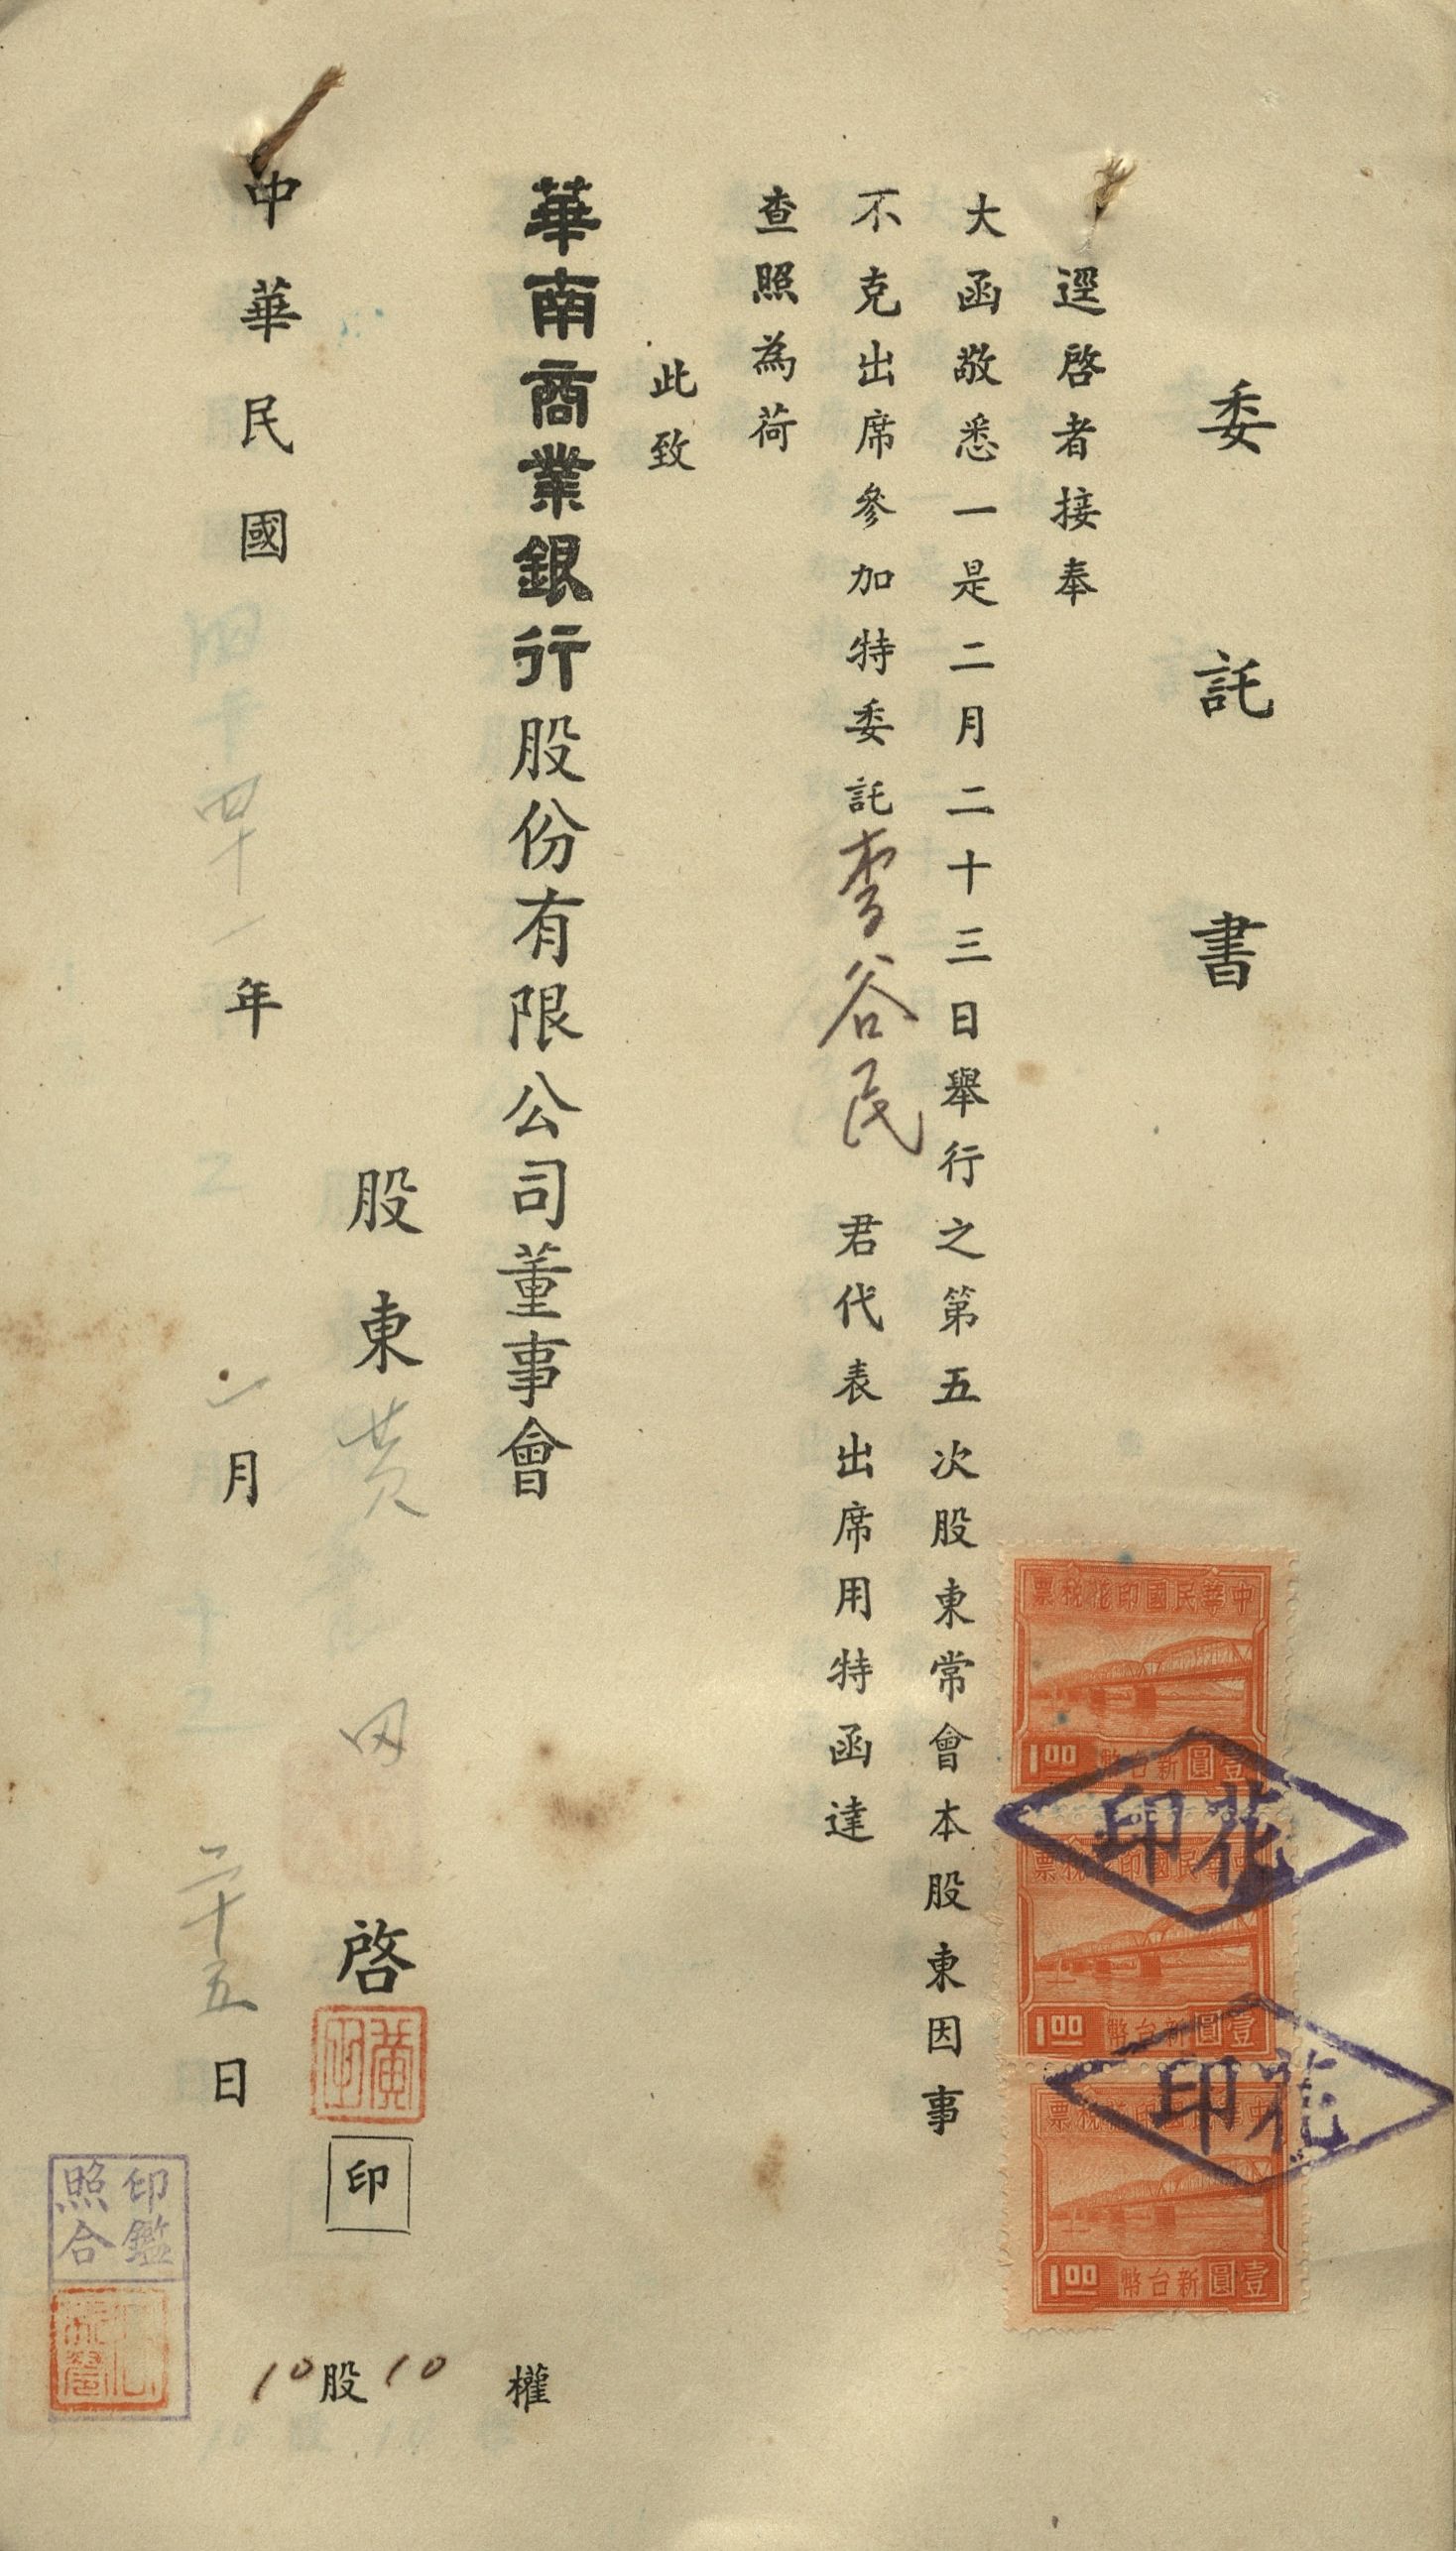 委託書
逕啓者接奉
大函敬悉一是二月二十三日舉行之第五次股東常會本股東因事
不克出席參加特委託李谷民君代表出席用特函達
查照為荷
此致
華南商業銀行股份有限公司董事會
股東黃 啓
印
中華民國四十一年 月二十五日
10股10權
中華民國印花稅票
1.00 壹圓新台幣
印花
中華民國印花稅票
1.00 壹圓新台幣
印花
中華民國印花稅票
1.00 壹圓新台幣
印鑑
照合